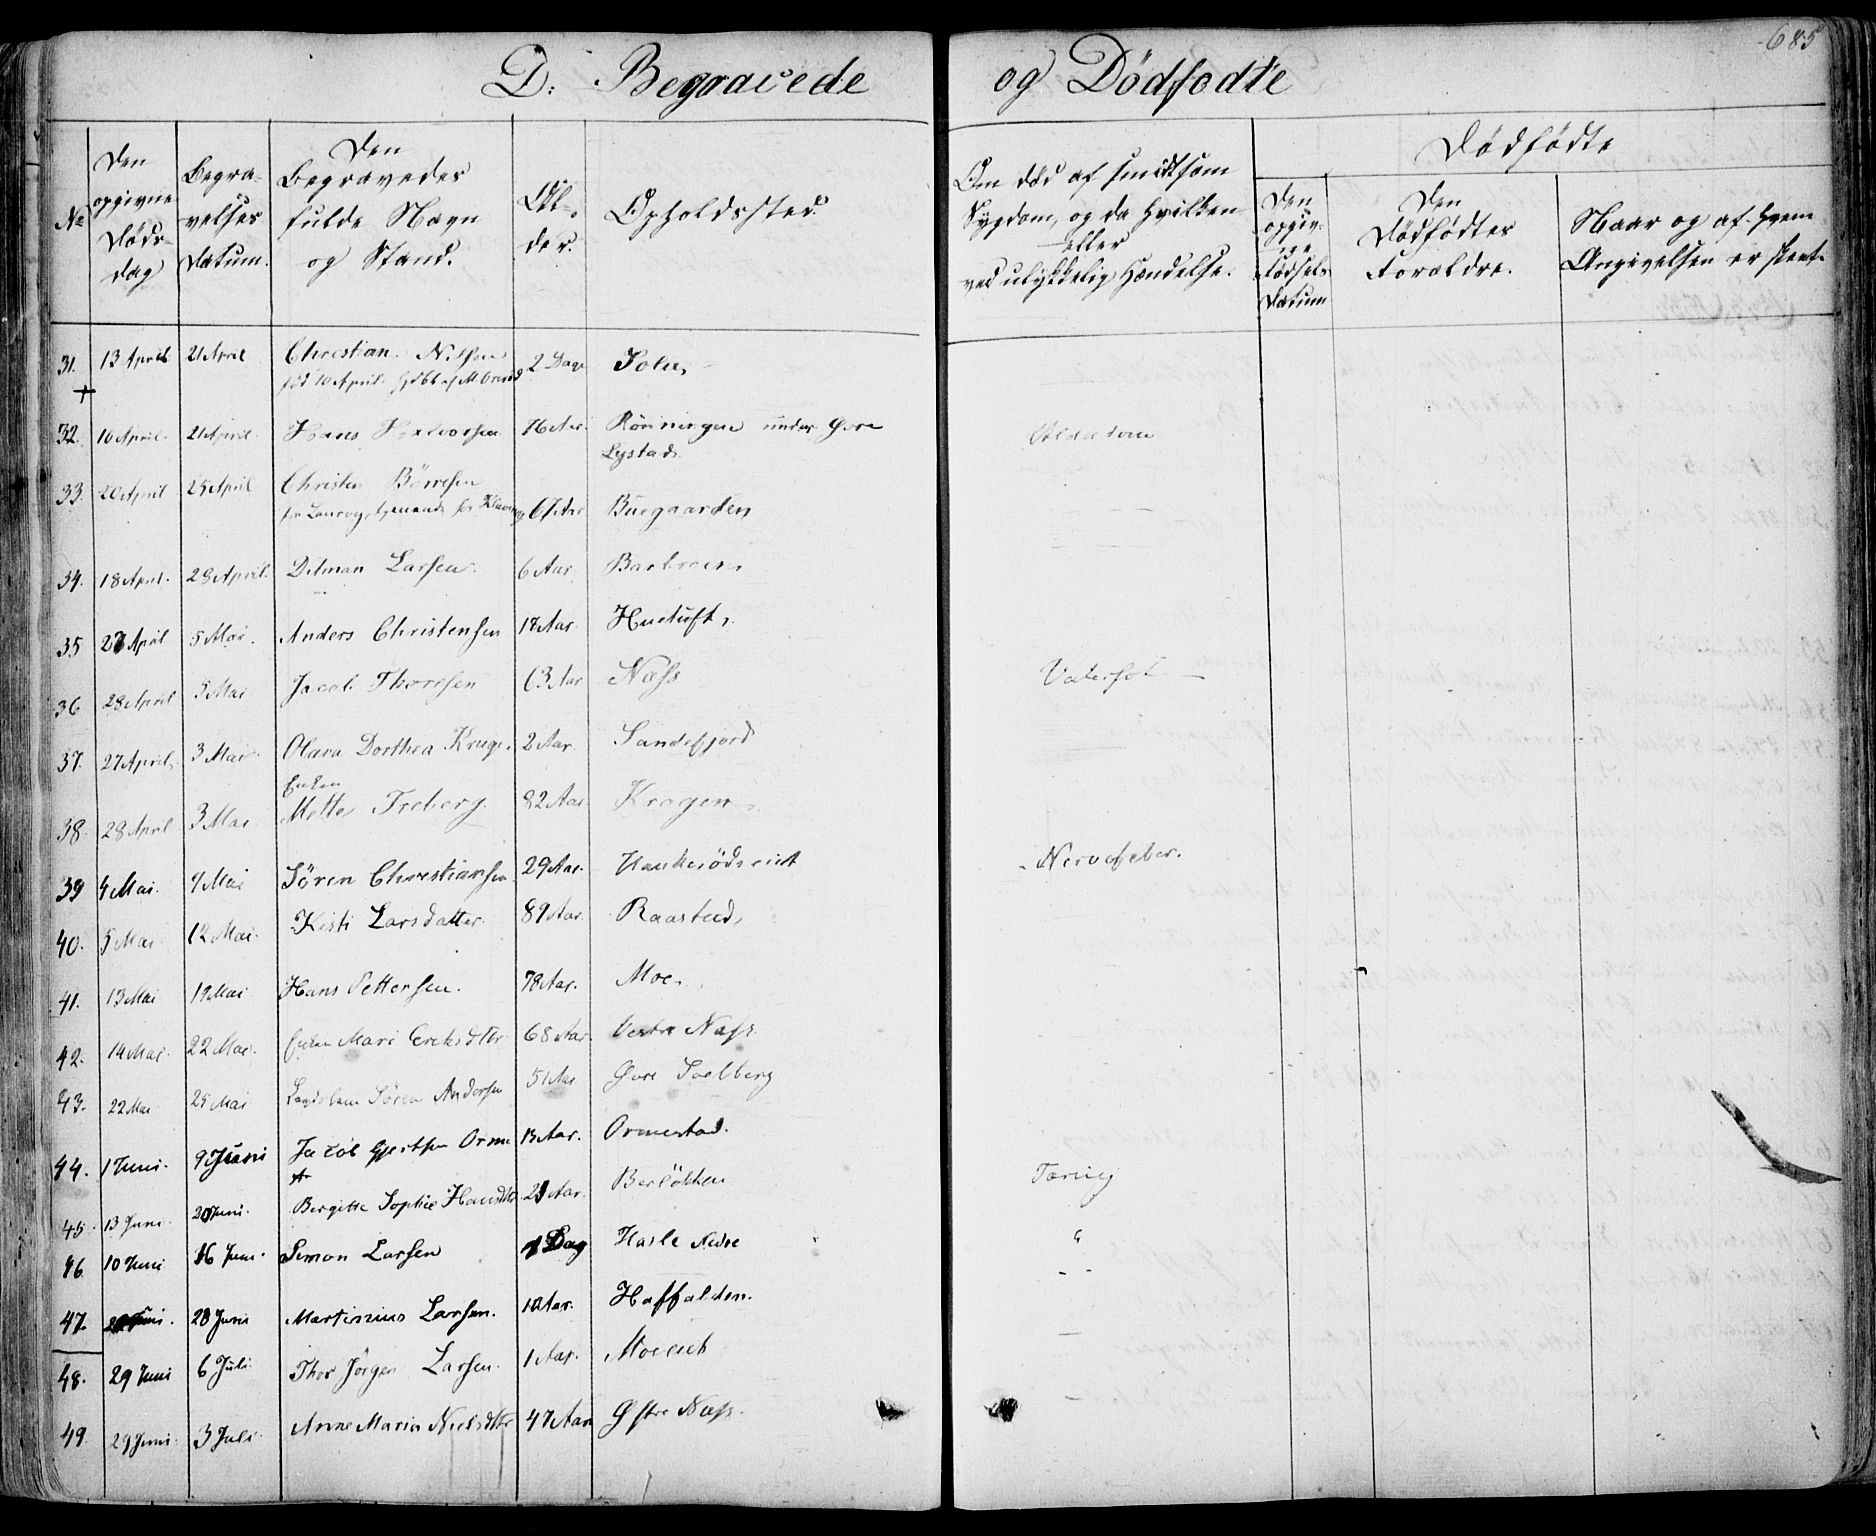 685
D: Begravede og Dödfödte
No
Den opgivne Döds- dag
Begra- velses Datum.
Den Begravedes fulde Navn og Stand.
Al- der.
Opholdssted.
Om död af smidtsom Sygdom, og da hvilken eller ved ulykkelig Hændelse.
Dödfödte
Den opgiv- ne Födsels Datum
Den Dödfödtes Forældre.
Naar og af hvem Angivelsen er skeet.
31. 13 April 21 April Christian Nilsen 2 Dage
född 10 April
32. 10 April 21 April Hans Halvorsen 76 Aar. Rönningen under Övre Alderdom
Lystad
33. 20 April 25 April Christen Börresen
Aar Buegaarden
34. 18 April 28 April. Ditman Larsen 6 Aar
35 April 5 Mai. Anders Christensen 18 Aar Huetuft
36 28 April 5 Mai Jacob Thoresen 63 Aar Næss Vatersot
37. 27 April 3 Mai Olava Dorthea Kruge 2 Aar. Sandefjord
Enken
38. 28 April 3 Mai Mette Treberg 82 Aar Krogen
39 4 Mai. 9 Mai Sören Christiansen 29 Aar. Haukerödeiet Nervefeber.
40. 5 Mai 12 Mai. Kisti Larsdatter 89 Aar. Raastad
41. 13 Mai 19 Mai Hans Pettersen. 78 Aar. Moe
42. 14 Mai 22 Mai. Enken Mari Ericksdtr 68 Aar Vestre Næss
43. 22 Mai 25 Mai Sören Andersen 51 Aar Övre Soelberg
44. 1 Juni. 9 Juni Jacob Gjertsen Orme 13 Aar. Ormestad.
45. 13 Juni 20 Juni. Birgitte Sophie Hansdtr 21 Aar. Berlökken Tæring
46. 10 Juni 16 Juni. Simon Larsen 1 Dag Hasle Nedre "
47. Juni. 28 Juni Martinius Larsen. 10 Aar. Haffalden.
48. 29 Juni 6 Juli Thor Jörgen Larsen. 1 Aar. Moeeiet
49. 29 Juni. 3 Juli. Anne Maria Nielsdtr 47 Aar Östre Næss